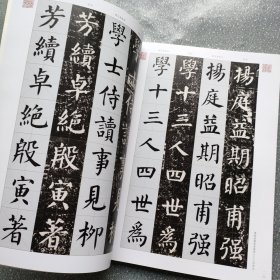 揚庭益期昭甫强
揚庭益期昭甫强
學十三人四世為
學十三人四世為
學士侍讀事見柳
芳續卓絕殷寅著
芳續卓絕殷寅著